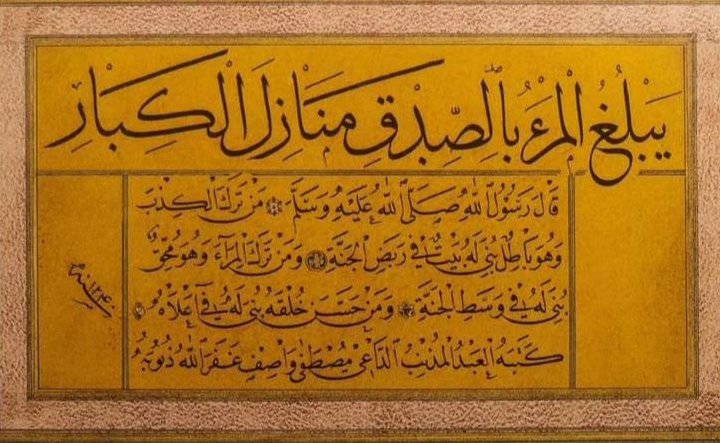 يَبْلُغُ الْمَرْءُ بِالصِّدْقِ مَنَازِلَ الْكِبَارِ
قَالَ رَسُولُ اللهِ صَلَّى اللهُ عَلَيْهِ وَسَلَّمَ مَنْ تَرَكَ الْكِذْبَ
وَهُوَ بَاطِلٌ بُنِيَ لَهُ بَيْتٌ فِي رَبَضِ الْجَنَّةِ وَمَنْ تَرَكَ الْمِرَآءَ وَهُوَ مُحِقٌّ
بُنِيَ لَهُ فِي وَسَطِ الْجَنَّةِ وَمَنْ حَسَّنَ خُلْقَهُ بُنِيَ لَهُ فِي أَعْلَاهُ
كَتَبَهُ الْعَبْدُ الْمُذْنِبُ الدَّاعِي مُصْطَفَى وَاصِفْ غَفَرَ اللهُ ذُنُوبَهُ
سنة ١٢٤٠